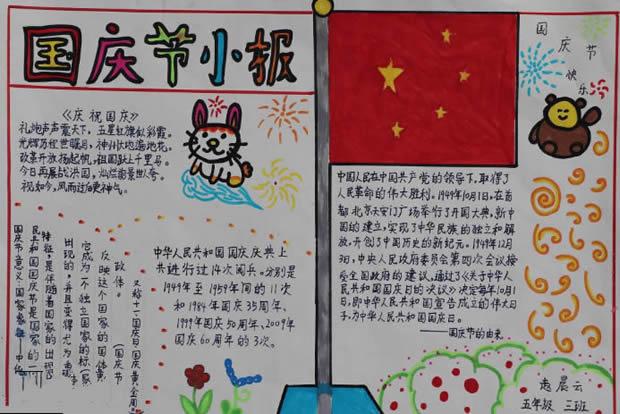 国庆节小报
国庆节快乐
《庆祝国庆》
礼炮声声震天下,五星红旗似彩霞。
光辉历程世瞩目,神州大地遍地花。
改革开放扬起帆,祖国跃上千里马。
今日再展战洪图,灿烂前景世人夸。
祝如今,风雨过后更神气。
中国人民在中国共产党的领导下,取得了
人民革命的伟大胜利。1949年10月1日,在首
都北京天安门广场举行了开国大典,新中
国的建立,实现了中华民族的独立和解
放,开创了中国历史的新纪元。1949年12月
3日,中央人民政府委员会第四次会议接
受全国政府的建议,通过了《关于中华人
民共和国国庆日的决议》决定每年10月1
日,即中华人民共和国宣告成立的伟大日
子,为中华人民共和国国庆日。
——国庆节的由来
国庆节意义:国家象征
民共和国国庆节是国家的一
特征,是伴随着国家的出现
出现的,并且变得尤为重要
它成为一个独立国家的标
反映这个国家的国体
政体。
(国庆节
又称十一、国庆日、国庆黄金周。
中华人民共和国国庆庆典上
共进行过14次阅兵。分别是
1949年至1959年间的11次
和1984年国庆35周年、
1999年国庆50周年、2009年
国庆60周年的3次。
晨云
五年级 三班